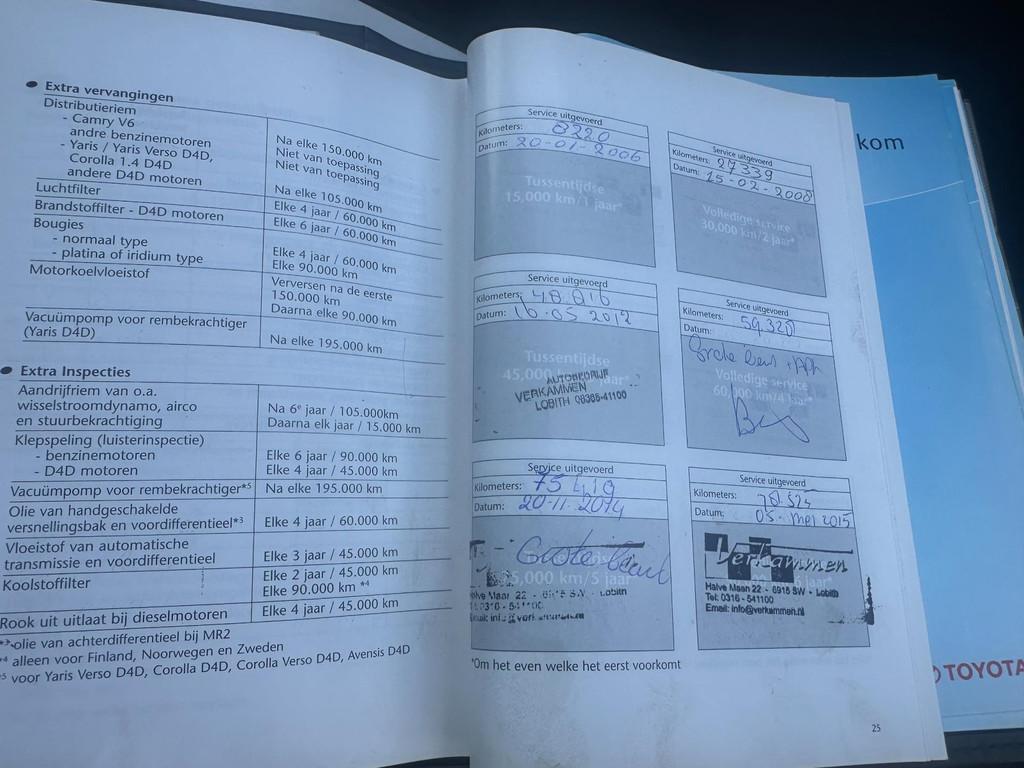 • Extra vervangingen
Distributieriem
- Camry V6
andre benzinemotoren
- Yaris / Yaris Verso D4D,
Corolla 1.4 D4D
andere D4D motoren
Na elke 150.000 km
Niet van toepassing
Niet van toepassing
Na elke 105.000 km
Luchtfilter
Elke 4 jaar / 60.000 km
Brandstoffilter - D4D motoren
Elke 6 jaar / 60.000 km
Bougies
- normaal type
- platina of iridium type
Elke 4 jaar / 60.000 km
Elke 90.000 km
Motorkoelvloeistof
Verversen na de eerste
150.000 km
Daarna elke 90.000 km
Vacuümpomp voor rembekrachtiger
(Yaris D4D)
Na elke 195.000 km
• Extra Inspecties
Aandrijfriem van o.a.
wisselstroomdynamo, airco
en stuurbekrachtiging
Na 6e jaar / 105.000km
Daarna elk jaar / 15.000 km
Klepspeling (luisterinspectie)
- benzinemotoren
- D4D motoren
Elke 6 jaar / 90.000 km
Elke 4 jaar / 45.000 km
Vacuümpomp voor rembekrachtiger*5
Na elke 195.000 km
Olie van handgeschakelde
versnellingsbak en voordifferentieel*3
Elke 4 jaar / 60.000 km
Vloeistof van automatische
transmissie en voordifferentieel
Elke 3 jaar / 45.000 km
Koolstoffilter
Elke 2 jaar / 45.000 km
Elke 90.000 km *4
Rook uit uitlaat bij dieselmotoren
Elke 4 jaar / 45.000 km
*3 olie van achterdifferentieel bij MR2
*4 alleen voor Finland, Noorwegen en Zweden
*5 voor Yaris Verso D4D, Corolla D4D, Corolla Verso D4D, Avensis D4D
Service uitgevoerd
Kilometers: 8220
Datum: 20-01-2006
Tussentijdse
15,000 km/1 jaar*
Service uitgevoerd
Kilometers: 27339
Datum: 15-02-2008
Volledige service
30,000 km/2 jaar*
Service uitgevoerd
Kilometers: 48.816
Datum: 16-05 2012
Tussentijdse
45,000 km/3 jaar*
AUTOBEDRIJF
VERKAMMEN
LOBITH 08365-41100
Service uitgevoerd
Kilometers: 59.328
Datum:
Grote beurt + APK
Volledige service
60,000 km/4 jaar*
Service uitgevoerd
Kilometers: 75419
Datum: 20-11-2014
Grote beurt
75,000 km/5 jaar
Halve Maan 22 - 6915 SW - Lobith
Service uitgevoerd
Kilometers: 78.525
Datum: 05-mei 2015
Verkammen
Halve Maan 22 - 6915 SW - Lobith
Tel: 0316 - 541100
Email: info@verkammen.nl
*Om het even welke het eerst voorkomt
25
kom
TOYOTA